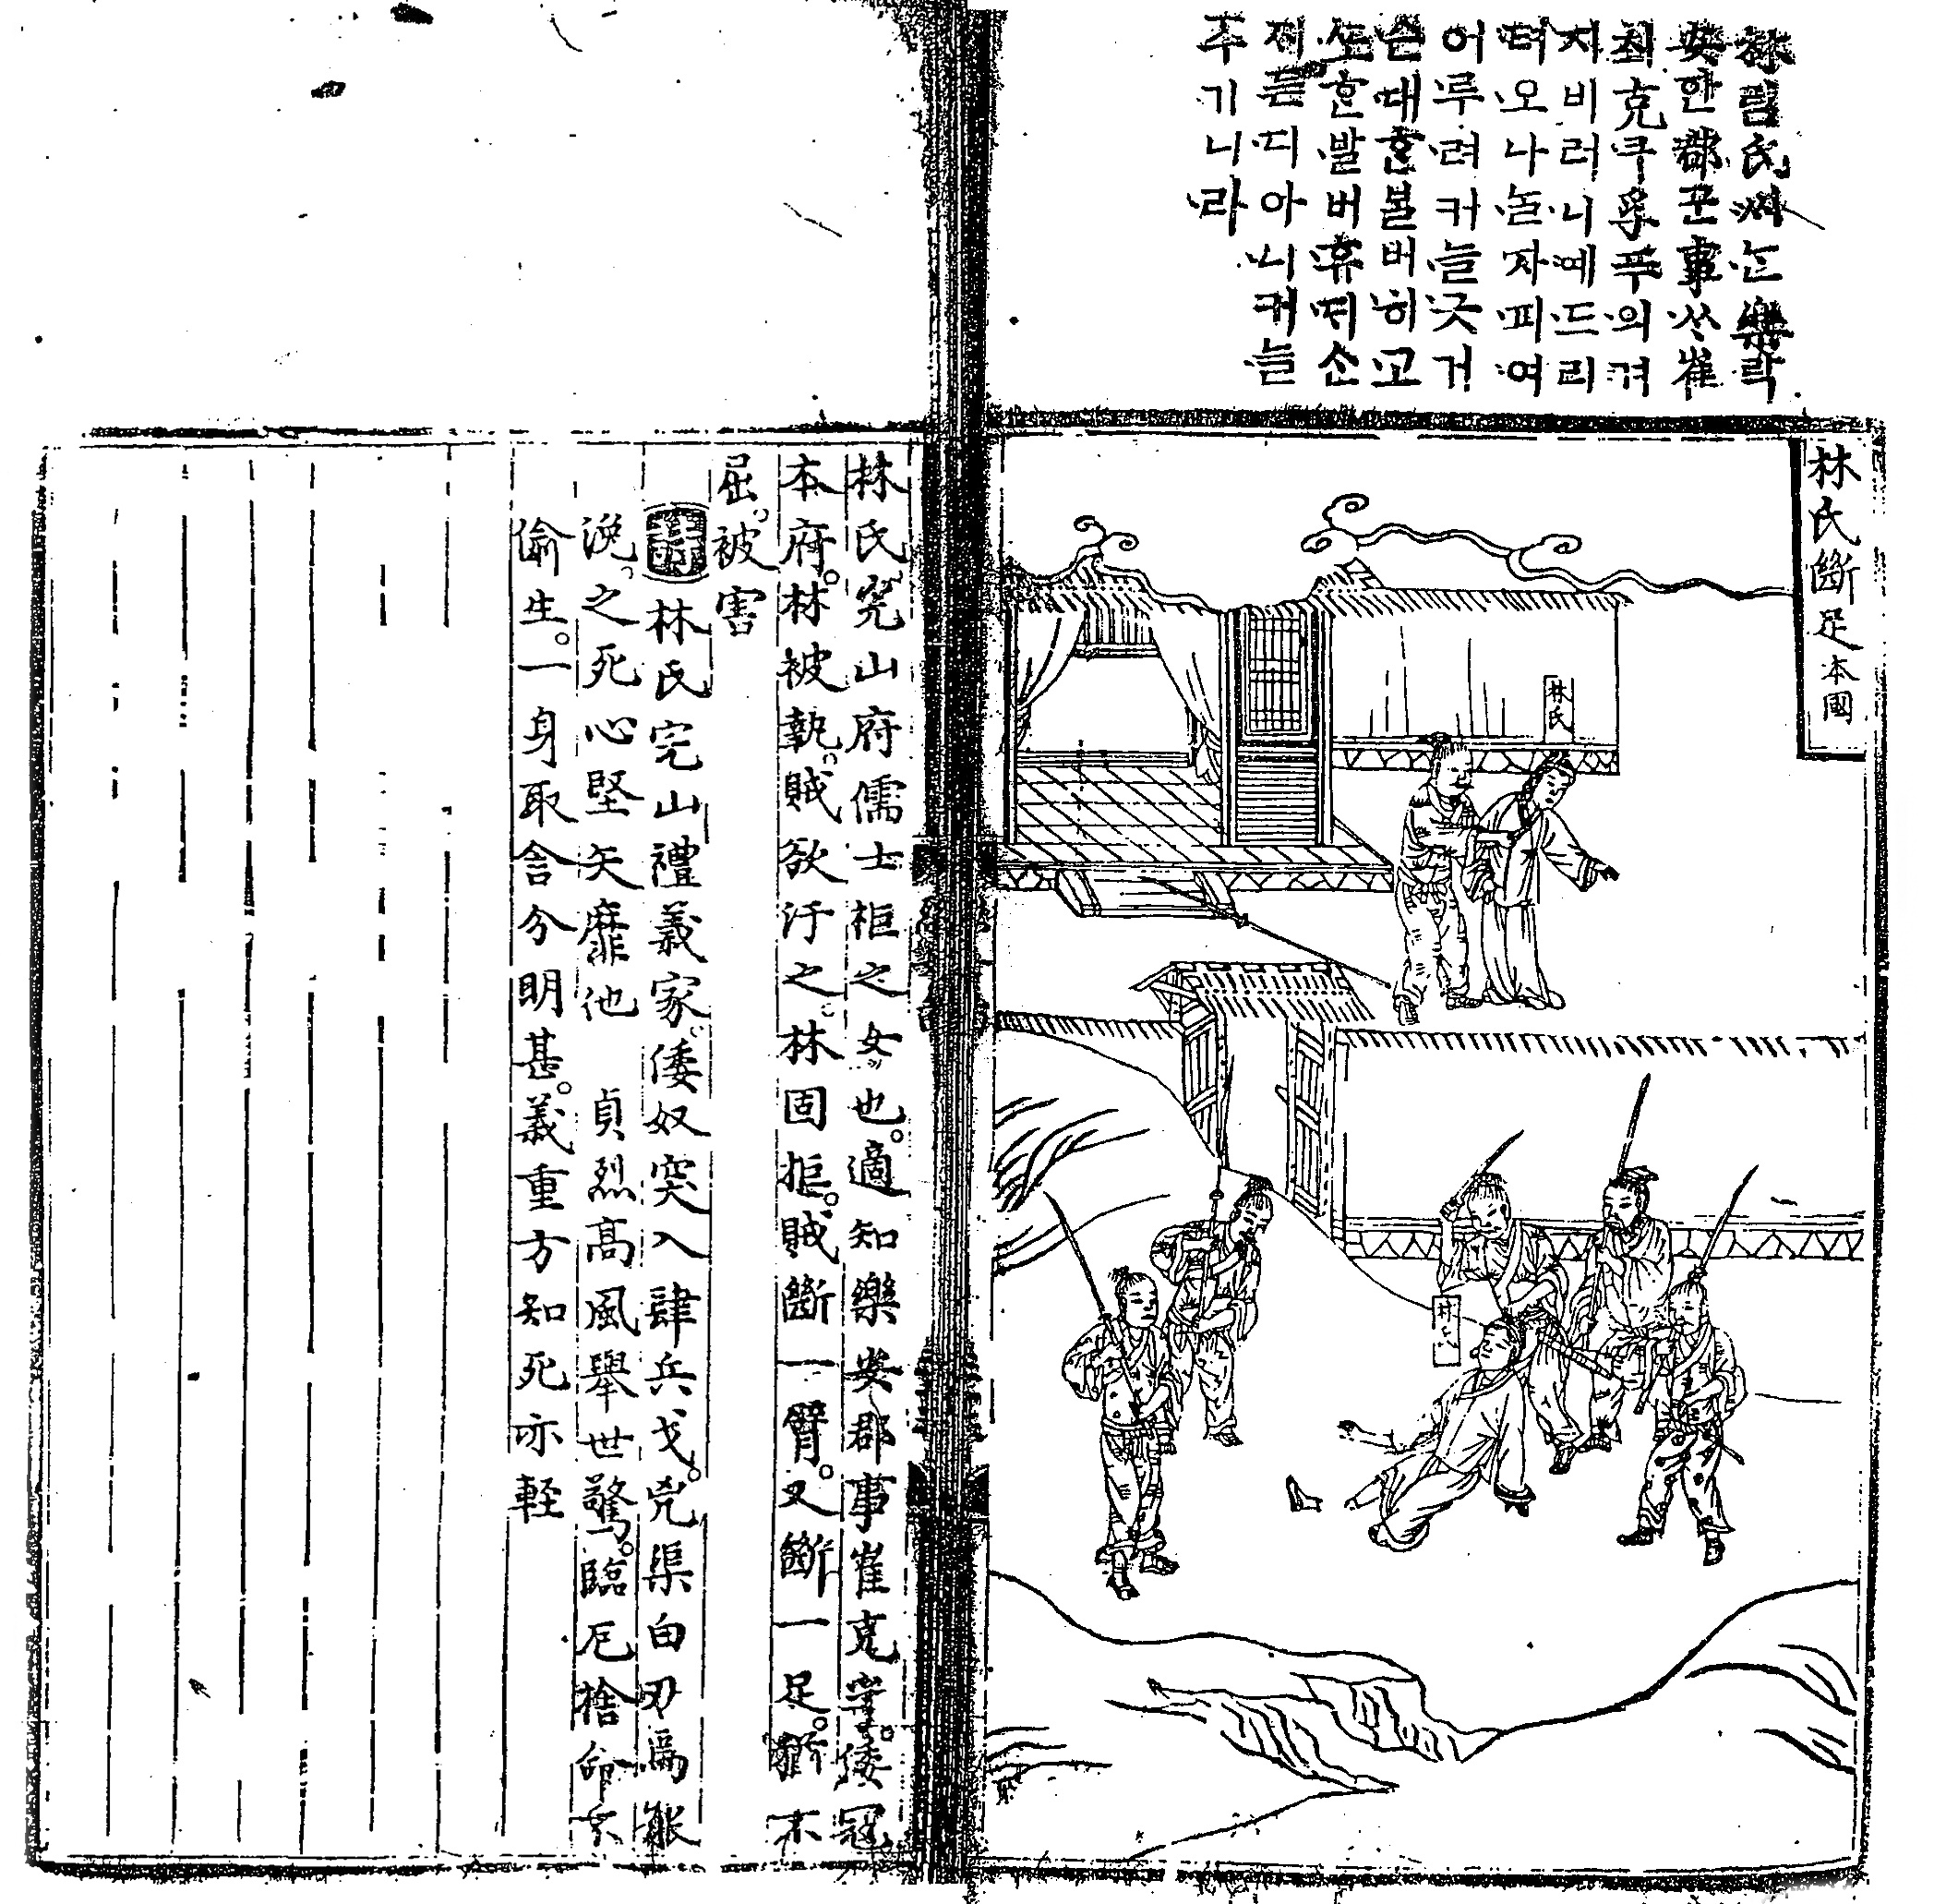 林림氏씨ᄂᆞᆫ樂락
安한郡꾼事ᄊᆞ崔
최克큭孚푸의겨
지비러니예드리
텨오나ᄂᆞᆯ자피여
어루려커늘긋거
슨대ᄒᆞᆫᄇᆞᆯ버히고
ᄯᅩᄒᆞᆫ발버휴ᄃᆡᄉᆞᆫ
ᄌᆡ듣디아니커늘
주기니라
林氏斷足 本國
林氏
林氏
林氏。完山府儒士柜之女也。適知樂安郡事崔克孚。倭寇
本府。林被執。賊欲汙之。林固拒。賊斷一臂。又斷一足。猶不
屈。被害
詩 林氏完山禮義家。倭奴突入肆兵戈。兇渠白刃焉能
浼。之死心堅矢靡他 貞烈高風擧世驚。臨危捨命不
偸生。一身取舍分明甚。義重方知死亦輕